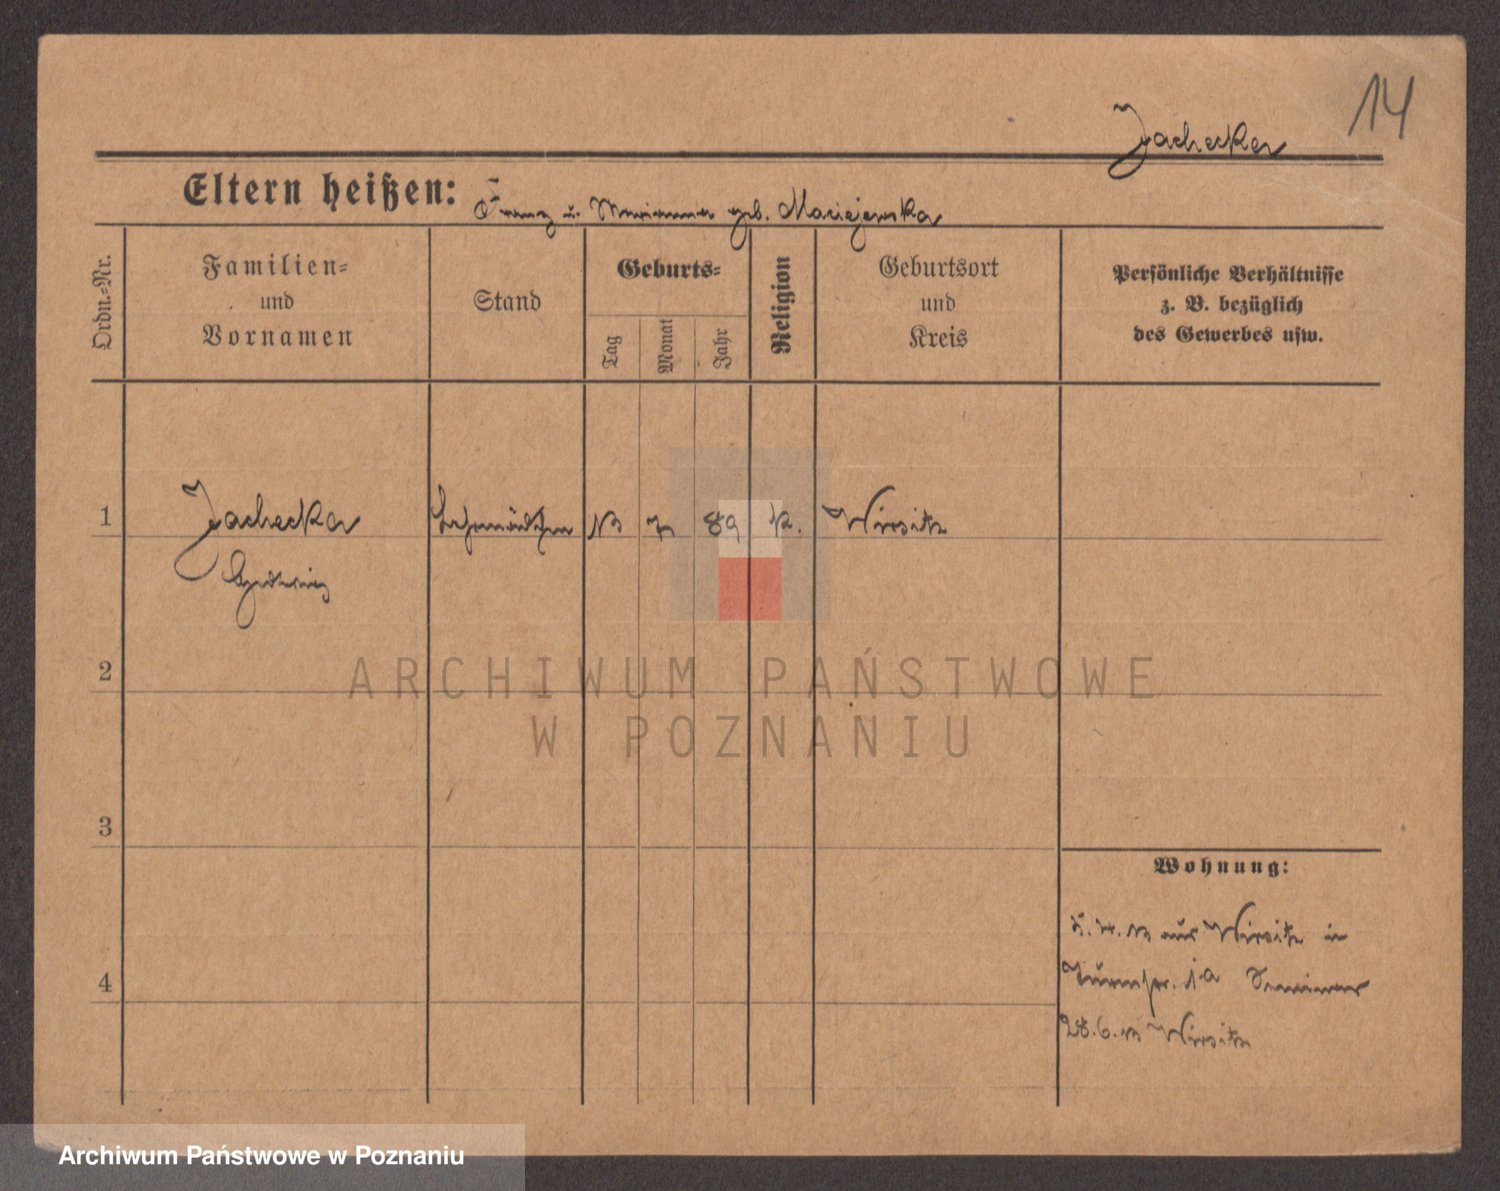 14
Jachecka
Eltern heißen: Franz u. Marianna geb. Maciejewska
Ordn.-Nr.
Familien-
und
Vornamen
Stand
Geburts-
Tag
Monat
Jahr
Religion
Geburtsort
und
Kreis
Persönliche Verhältnisse
z. B. bezüglich
des Gewerbes usw.
1 Jachecka 7 89 k. Wirsitz
Hedwig
2
3
4
Wohnung:
aus Wirsitz in
Turmstr. 1a Seminar
28.6. Wirsitz
ARCHIWUM PAŃSTWOWE
W POZNANIU
Archiwum Państwowe w Poznaniu